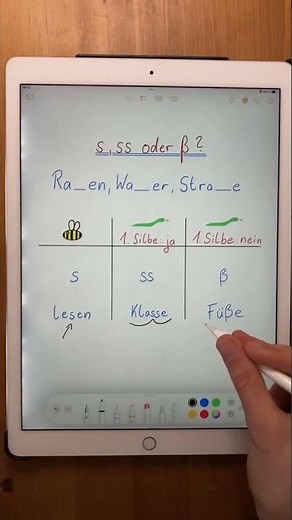 s, ss oder ß?
Ra__en, Wa__er, Stra__e
1. Silbe: ja 1. Silbe: nein
s ss ß
lesen Klasse Füße